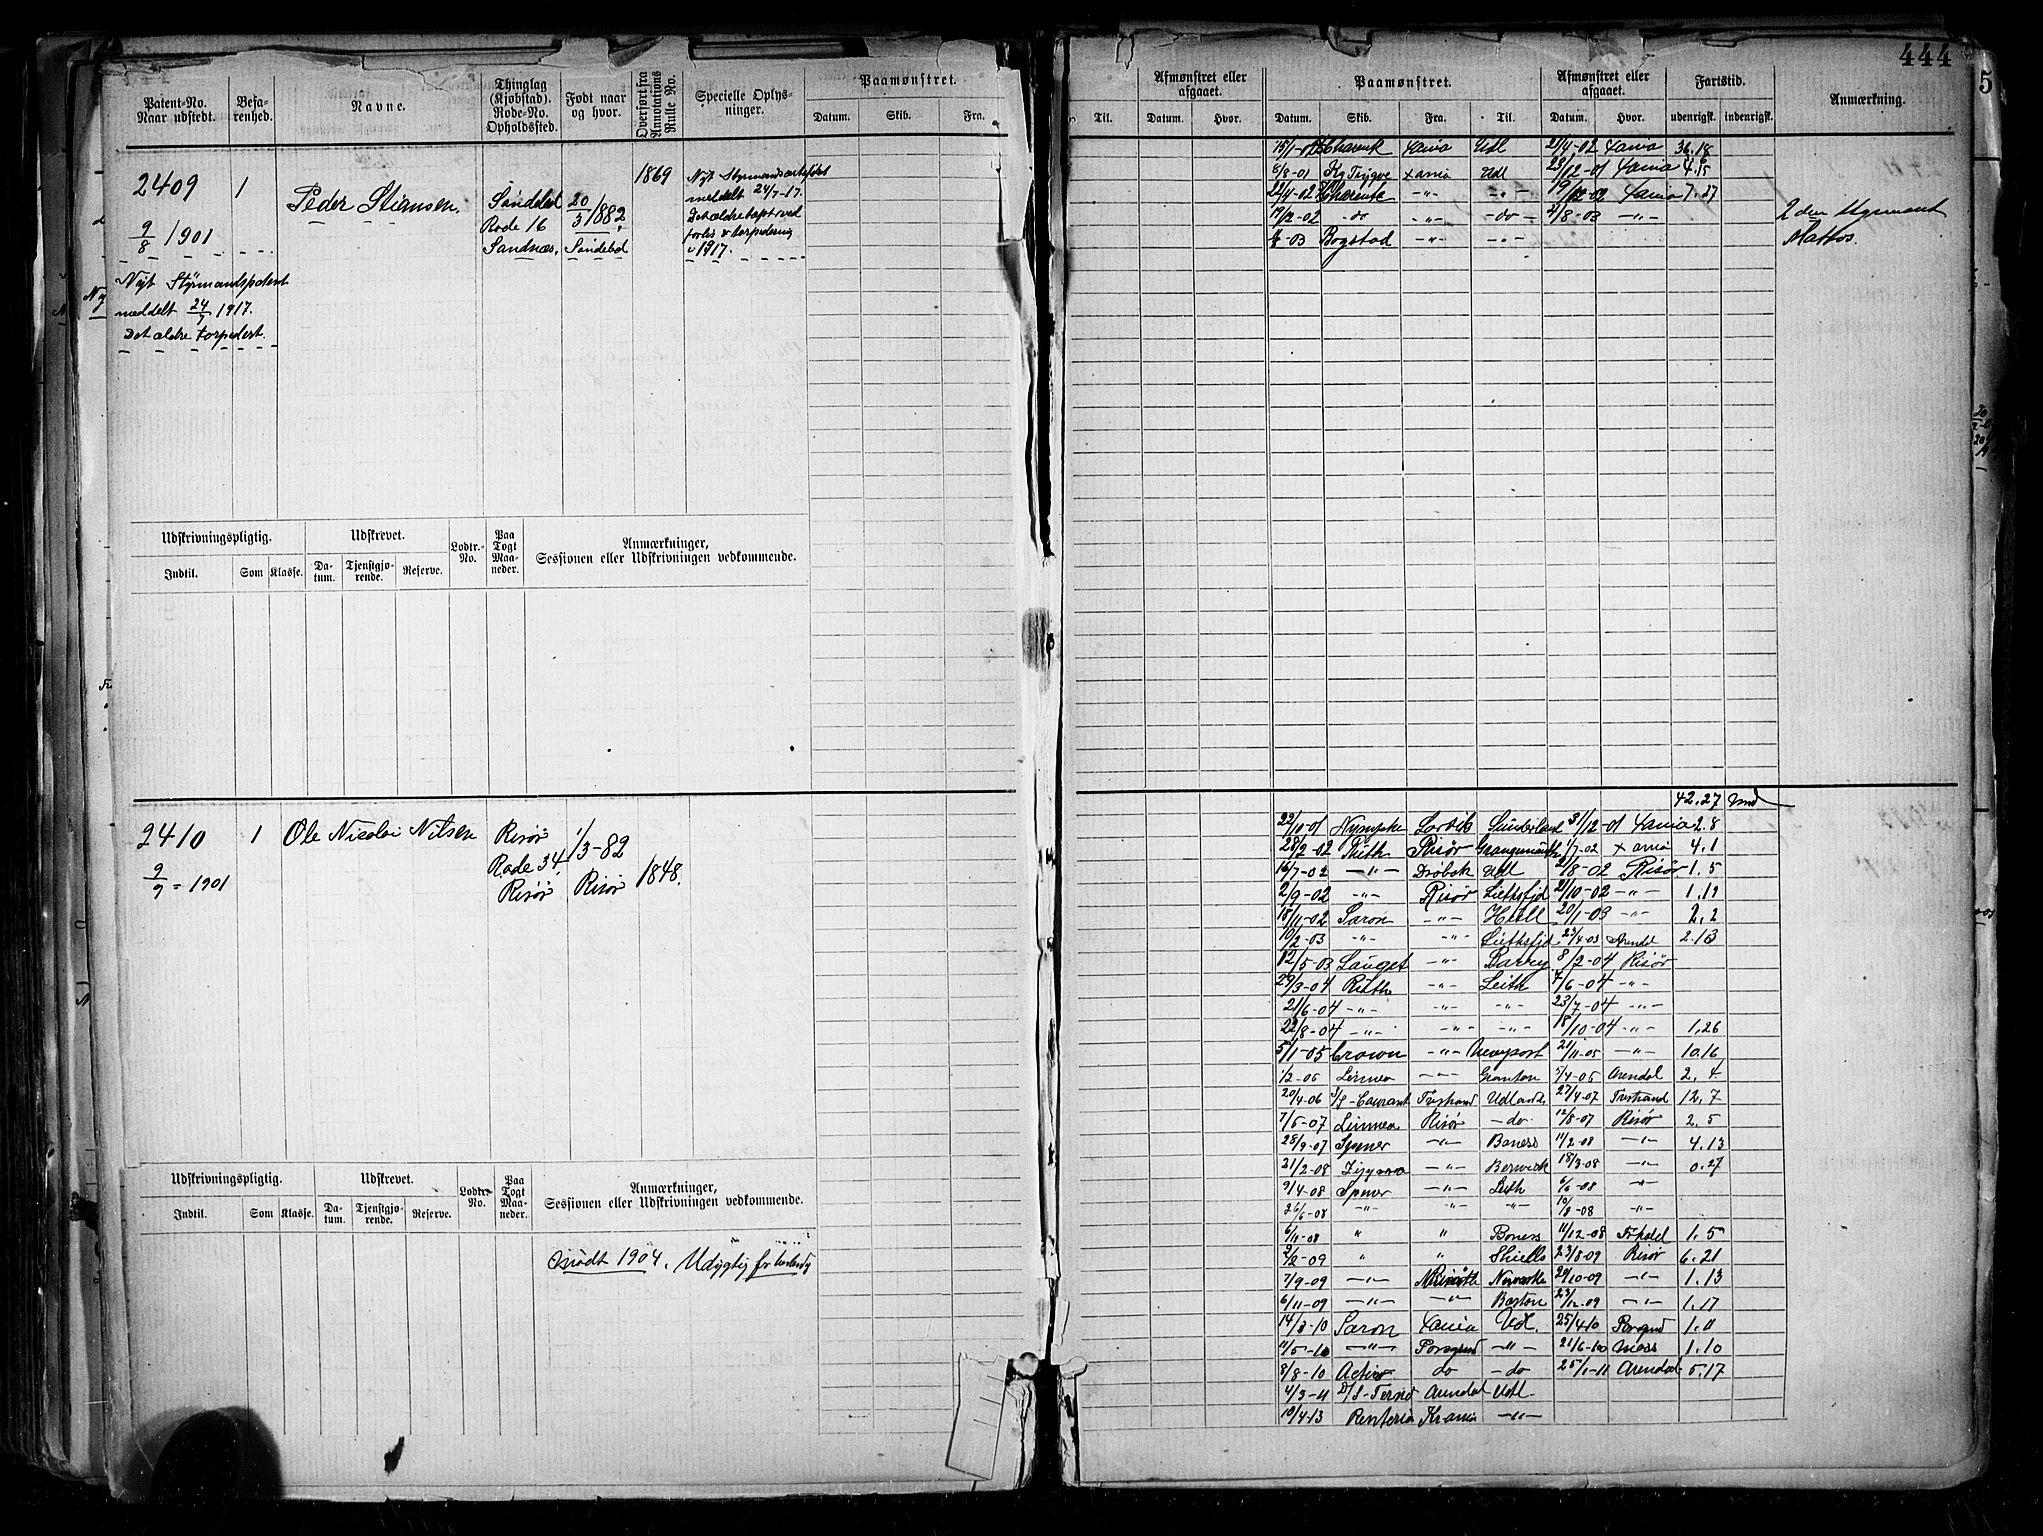 444
Patent-No. Naar udstedt.
Befarenhed.
Navne.
Thinglag (Kjøbstad). Rode-No. Opholdssted.
Født naar og hvor.
Overført fra Annotations Rulle No.
Specielle Oplysninger.
Paamønstret.
Datum. Skib. Fra.
Til.
Afmønstret eller afgaaet.
Datum. Hvor.
Paamønstret.
Datum. Skib. Fra. Til.
Afmønstret eller afgaaet.
Datum. Hvor.
Fartstid.
udenrigsk. indenrigsk.
Anmærkning.
2409 1 Peder Stiansen.
9/8 1901
Søndeled
Rode 16
Sandnæs.
20/3 1882
Søndeled
1869
meddelt 24/7-17.
Det ældre tapt ved
forlis v torpedering
1917.
Nyt Styrmandspatent
meddelt 24/7 1917.
Det ældre torpedert.
15/1-01 Xania Udl 21/4-02 Xania 36.18
6/8-01 Kg Trygve Xania Udl 23/12-01 Xania 4.15
22/4-02 -"- -"- 19/12-02 Xania 7.27
19/12-02 -do -"- -do- 2/8-03 -"-
-03 Bogstad -"- -"-
2den Styrmand
Udskrivningspligtig. Udskrevet. Lodtr.-No. Paa Togt Maaneder. Anmærkninger, Sessionen eller Udskrivningen vedkommende.
Indtil. Som Klasse. Datum. Tjenstgjørende. Reserve.
42.27
2410 1 Ole Nicolai Nilsen
9/9 = 1901
Risør
Rode 34.
Risør
1/3-82
Risør
1848.
22/10-01 Larvik Sunderland 31/12-01 Xania 2.8
28/2-02 Ruth Risør Grangemouth 1/7-02 Xania 4.1
16/7-02 -"- Drøbak Udl 21/8-02 Risør 1.5
2/9-02 -"- Risør 21/10-02 -"- 1.19
18/11-02 Saron -"- Hull 20/1-03 -"- 2.2
10/2-03 -"- -"- 23/4-03 Arendal 2.13
12/5-03 -"- Barry 8/2-04 Risør
29/3-04 Ruth -"- Leith 7/6-04 -"-
21/6-04 -"- -"- -"- 23/7-04 -"-
22/8-04 -"- -"- -"- 18/10-04 -"- 1.26
5/1-05 Crown -"- Newport 21/11-05 -"- 10.16
1/2-06 Linnea -"- Granton 5/4-06 Arendal 2.4
20/4-06 S/S-Courant Udlandet 27/4-07 12.7
7/5-07 Linnea Risør -do 12/8-07 Risør 2.5
28/9-07 Spener -"- Boness 11/2-08 -"- 4.13
21/2-08 -"- Berwick 18/3-08 -"- 0.27
9/4-08 Spener -"- Leith 6/6-08 -"-
26/6-08 -"- -"- -"- 10/8-08 -"-
6/11-08 " " Boness 11/12-08 1.5
2/2-09 " " Shiells 23/8-09 Risør 6.21
7/9-09 -"- 20/10-09 -"- 1.13
6/11-09 -"- -"- Boston 23/12-09 -"- 1.17
14/3-10 Saron Xania Udl. 25/4-10 Porsgrd 1.11
11/5-10 -"- Porsgrund -"- 21/6-10 Moss 1.10
8/8-10 Activ do -do 25/1-11 Arendal 5.17
4/3-11 Arendal Udl
10/4-13 Renteria Krania -"-
Udskrivningspligtig. Udskrevet. Lodtr.-No. Paa Togt Maaneder. Anmærkninger, Sessionen eller Udskrivningen vedkommende.
Indtil. Som Klasse. Datum. Tjenstgjørende. Reserve.
1904. Udygtig